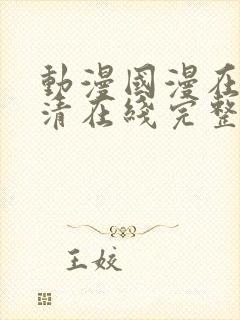 動漫國漫在
清在綫完整
王姣